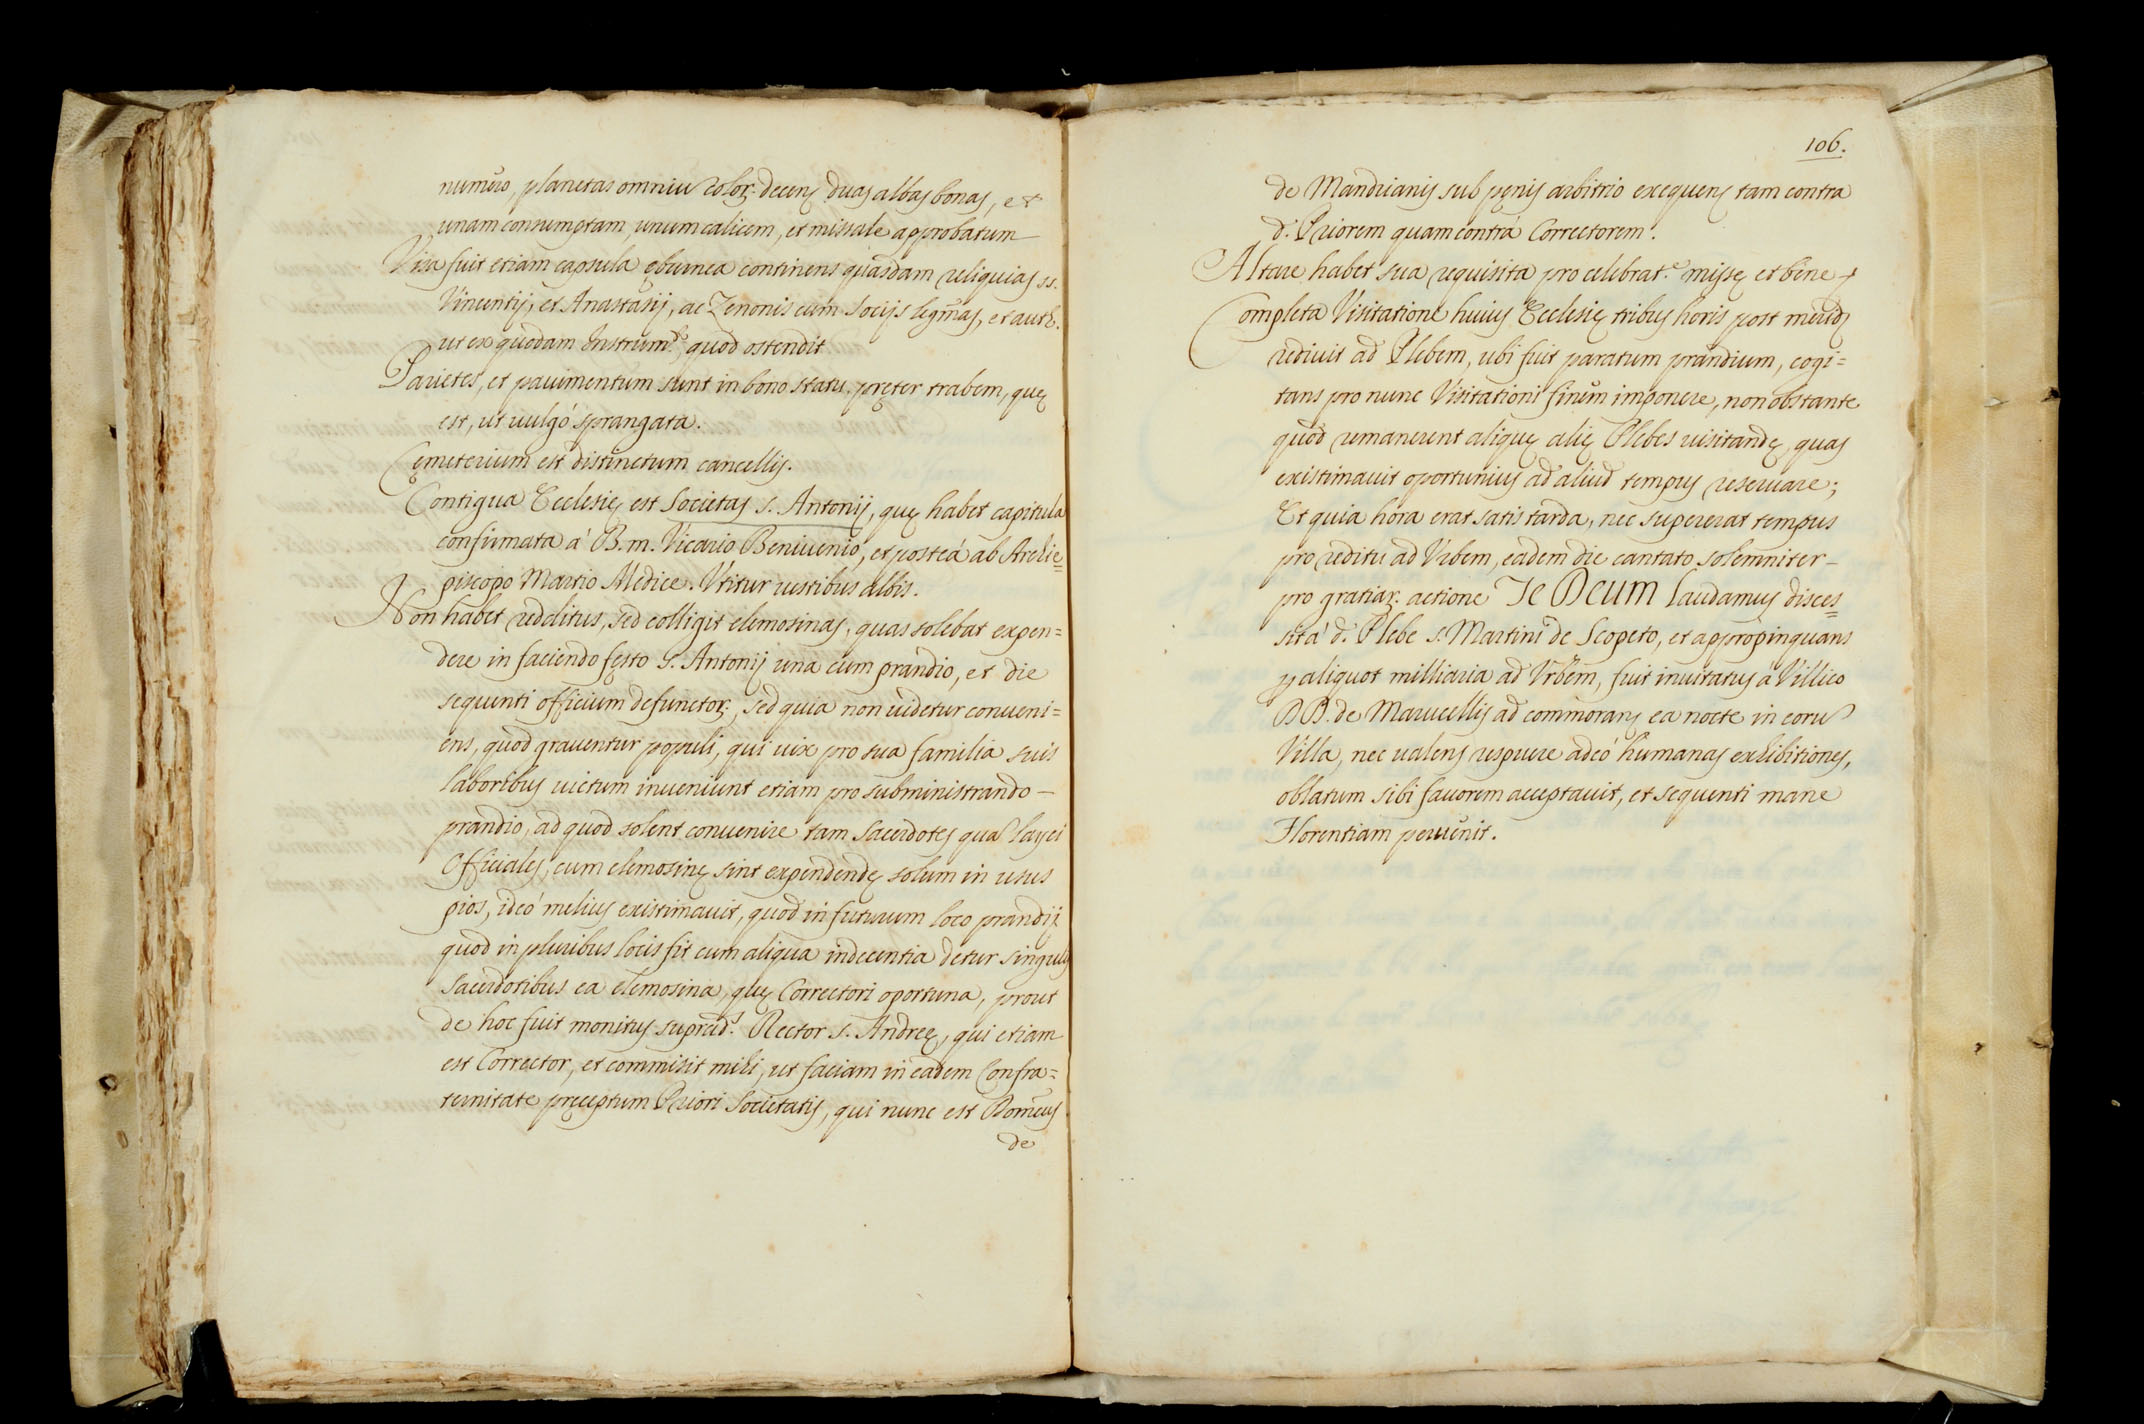 numero, planetas omniu color. decenę duas albas bonas, et
unam consumptam, unum calicem, et missale approbatum
Visa fuit etiam capsula ęburnea continens quasdam reliquias ss.
Vincentij, et Anastasij, ac Zenonis cum socijs legmas, et auth.
ut ex quodam Instrumto. quod ostendit
Parietes, et pauimentum sunt in bono statu pręter trabem, quę
est, ut uulgò sprangata.
Cęmeterium est distinctum cancellis.
Contigua Ecclesię est Societas s. Antonij, quę habet capitula
confirmata à B. m. Vicario Beniuenio, et posteà ab Archie=
piscopo Martio Medice. Vtitur uestibus albis.
Non habet redditus, sed colligit elemosinas, quas solebat expen=
dere in faciendo fęsto S. Antonij una cum prandio, et die
sequenti officium defunctor., sed quia non uidetur conueni=
ens, quod grauentur populi, qui uix pro sua familia suis
laboribus uictum inueniunt etiam pro subministrando –
prandio, ad quod solent conuenire tam Sacerdotes qua layci
Officiales, cum elemosinę sint expendendę solum in usus
pios, ideò melius existimauit, quod in futurum loco prandij
quod in pluribus locis fit cum aliqua indecentia detur singulis
sacerdotibus ea elemosina, quę Correctori oportuna, prout
de hoc fuit monitus suprads. Rector s. Andreę, qui etiam
est Corrector, et commisit mihi, ut faciam in eadem Confra=
ternitate pręceptum Priori Societatis, qui nunc est Romeus
de
106.
de Mandrianis sub pęnis arbitrio exequens tam contra
d. Priorem quam contrà Correctorem.
Altare habet sua requisita pro celebrat.e missę et bene
Completa Visitatione huius Ecclesię tribus horis post merid
rediuit ad Plebem, ubi fuit paratum prandium, cogi=
tans pro nunc Visitationi finem imponere, non obstante
quod remanerent aliquę alię Plebes uisitandę, quas
existimauit oportunius ad aliud tempus reseruare;
Et quia hora erat satis tarda, nec supererat tempus
pro reditu ad Vrbem, eadem die cantato solemniter –
pro gratiar. actione Te Deum laudamus disces=
sit à d. Plebe s. Martini de Scopeto, et appropinquans
p aliquot milliaria ad Vrbem, fuit inuitatus à Villico
DD. de Marucellis ad commorans ea nocte in coru
Villa, nec ualens respuere adeò humanas exhibitiones,
oblatum sibi fauorem acceptauit, et sequenti mane
Florentiam peruenit.